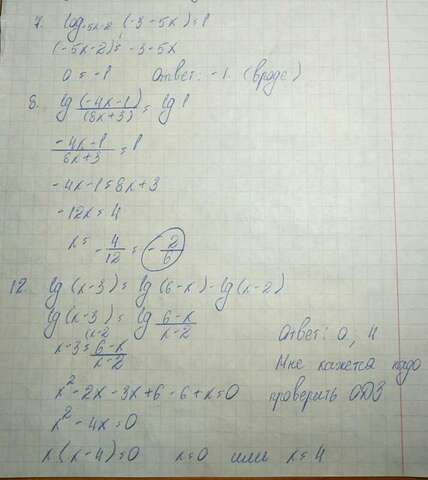 7. log₋₅ₓ₋₂ (-3-5x) = 1
(-5x-2)¹ = -3-5x
0 = -1 Ответ: -1. (вроде)
8. lg (-4x-1)/(8x+3) = lg 1
(-4x-1)/(8x+3) = 1
-4x-1 = 8x+3
-12x = 4
x = -4/12 = -2/6
12. lg (x-3) = lg (6-x) - lg (x-2)
lg (x-3) = lg (6-x)/(x-2)
(x-2
x-3 = (6-x)/(x-2)
Ответ: 0, 4
Мне кажется надо
проверить ОДЗ
x² - 2x - 3x + 6 - 6 + x = 0
x² - 4x = 0
x(x-4) = 0 x = 0 или x = 4